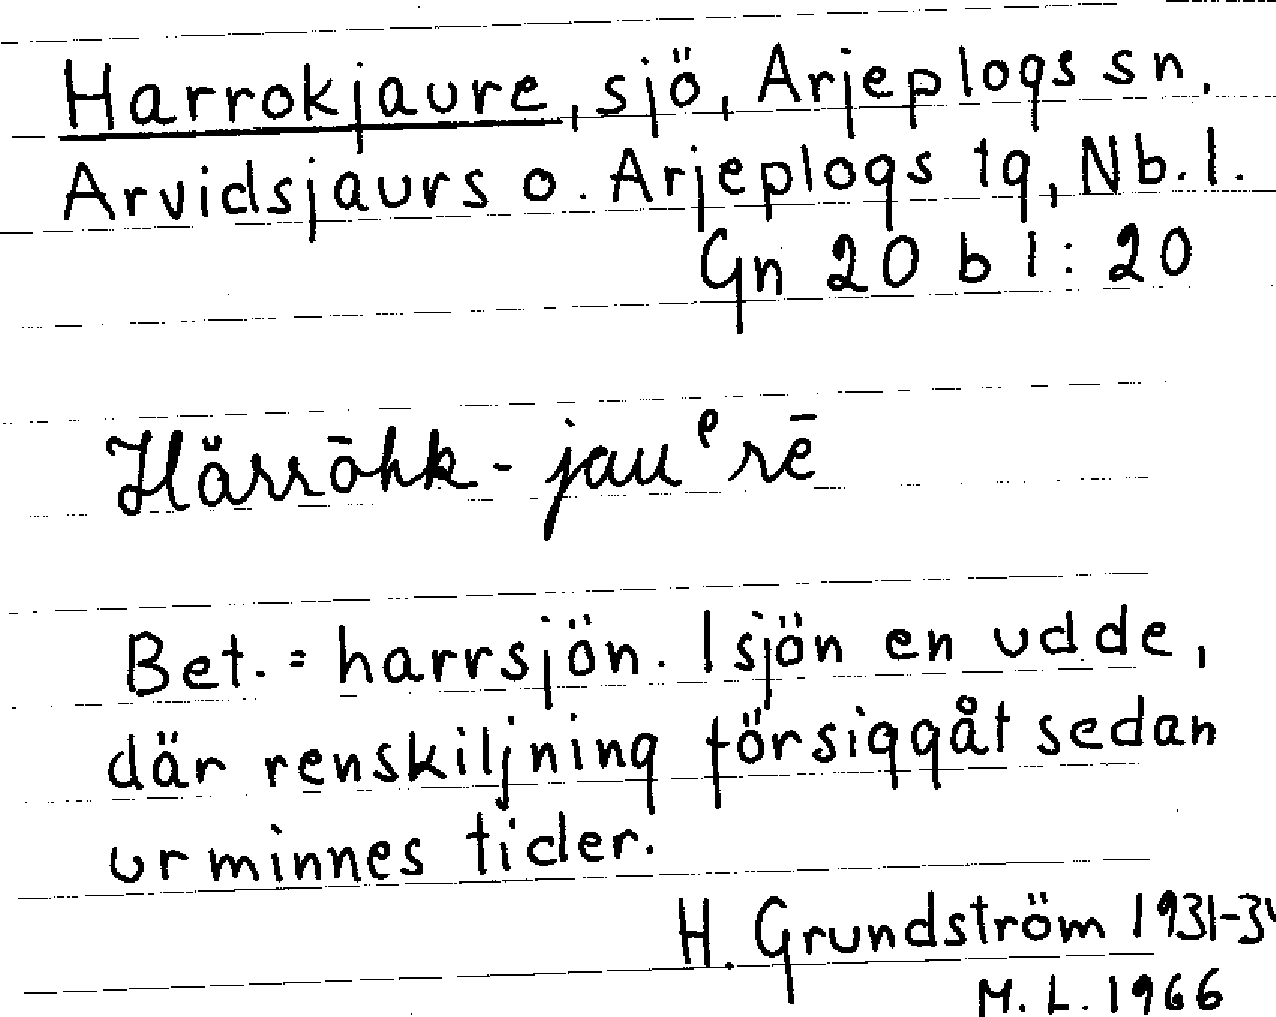 Harrokjaure, sjö, Arjeplogs sn,
Arvidsjaurs o. Arjeplogs tg, Nb. l.
Gn 20 b l : 20
Hårrōhk - jauᵉrē
Bet. = harrsjön. I sjön en udde,
där renskiljning försiggåt sedan
urminnes tider.
H. Grundström 1931-34
M. L. 1966